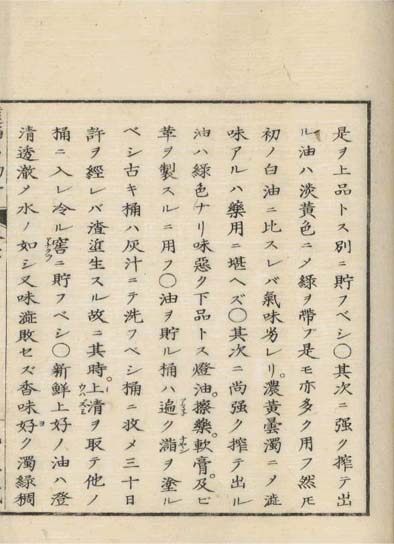 是ヲ上品トス別ニ貯フベシ〇其次ニ强ク搾テ出
ル油ハ淡黄色ニメ綠ヲ帶ブ是モ亦多ク用フ然𪜈
初ノ白油ニ比スレバ氣味劣レリ。濃黄曇濁ニメ澁
味アルハ藥用ニ堪ヘズ〇其次ニ尚强ク搾テ出ル
油ハ綠色ナリ味惡ク下品トス燈油。擦藥。軟膏。及ビ
革ヲ製スルニ用フ〇油ヲ貯ル桶ハ遍ク瀝ヲ塗ル
ベシ古キ桶ハ灰汁ニテ洗フベシ桶ニ收メ三十日
許ヲ經レバ渣滓生スル故ニ其時。上清ヲ取テ他ノ
桶ニ入レ冷ル窖ニ貯フベシ〇新鮮上好ノ油ハ澄
清透澈メ水ノ如シ又味澁敗セズ香味好ク濁綠稠